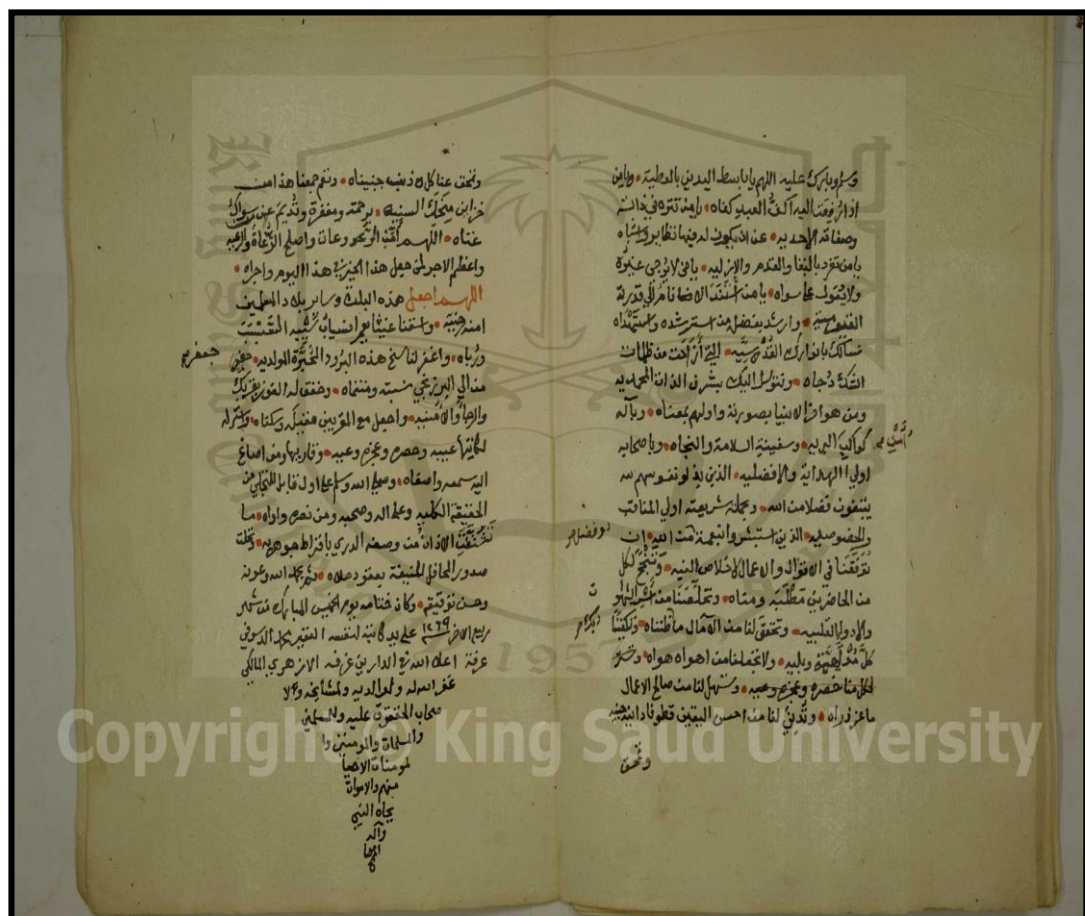 وسلم وبارك عليه اللهم يا باسط اليدين بالعطيه ويا من
اذا رفعت اليه اكف العبد كفاه يا من تنزه في ذاته
وصفاته الاحديه عن ان يكون له فيها نظاير واشباه
يا من تفرد بالبقا والقدم والازليه يا من لا يرجى غيره
ولا يعول على سواه يا من استند الانام الى قدرته
القيوميه وارشد بفضله من استرشده واستهداه
نسالك بانوارك القدسيه التي ازاحت من ظلمات
الشك دجاه ونتوسل اليك بشرف الذات المحمديه
ومن هو اخر الانبيا بصورته واولهم بمعناه وبآله
كواكب امن البريه وسفينة السلامة والنجاه وباصحابه
اولي الهداية والافضليه الذين بذلوا نفوسهم لله
يبتغون فضلا من الله وبحملة شريعته اولي المناقب
والخصوصيه الذين استبشروا بنعمة وفضل من الله ان
توفقنا في الاقوال والاعمال لاخلاص النيه وتنجح لكل
من الحاضرين مطلبه ومناه وتخلصنا من اسر الشهوات
والادواء القلبيه وتحقق لنا من الآمال ما ظنناه وتكفينا
كل مدلهمة وبليه ولا تجعلنا ممن اهواه هواه وتستر
لكل منا حصره وعجزه وعيه وتسهل لنا من صالح الاعمال
ما عز ذراه وتدني لنا من حسن اليقين قطوفا دانية جنيه
وتمحق
وتمحق عنا كل ذنب جنيناه وتعم جمعنا هذا من
خزاين منحك السنيه برحمة ومغفرة وتديم عمن سواك
غناه اللهم آمن الروعات واصلح الرعاة والرعيه
واعظم الاجر لمن جعل هذا الخير في هذا اليوم واجراه
اللهم اجعل هذه البلدة وساير بلاد المسلمين
امنة رخيه واسقنا غيثا يعم انسياب سيبه السبسب
ورباه واغفر لناسج هذه البرود المحبرة المولديه جعفر
من الى البرزنجي نسبته ومنتماه وحقق له الفوز بقربك
والرجا والامنيه واجعل مع المقربين مقيله وسكناه واستر له
عيبه وحصره وعجزه وعيه وكاتبها وقاريها ومن اصاخ
اليه سمعه واصغاه وصلى الله وسلم على اول قابل للتجلي من
الحقيقة الكليه وعلى اله وصحبه ومن نصره ووالاه ما
شنفت الاذان من وصفه الدري باقراط جوهريه وتحلت
صدور المحافل المنيفة بعقود حلاه تم بحمد الله وعونه
وحسن توفيقه وكان ختامه يوم الخميس المبارك من شهر
ربيع الاخر ١٢٦٩ على يد كاتبه لنفسه الفقير محمد الدسوقي
عرفة اعلا الله في الدارين غرفه الازهري المالكي
غفر الله له ولوالديه ولمشايخه ولا
صحاب الحقوق عليه وللمسلمين
والمسلمات والمومنين وا
لمومنات الاحيا
منهم والاموات
بجاه النبي
وآله
Copyright © King Saud University
King Saud University
1957